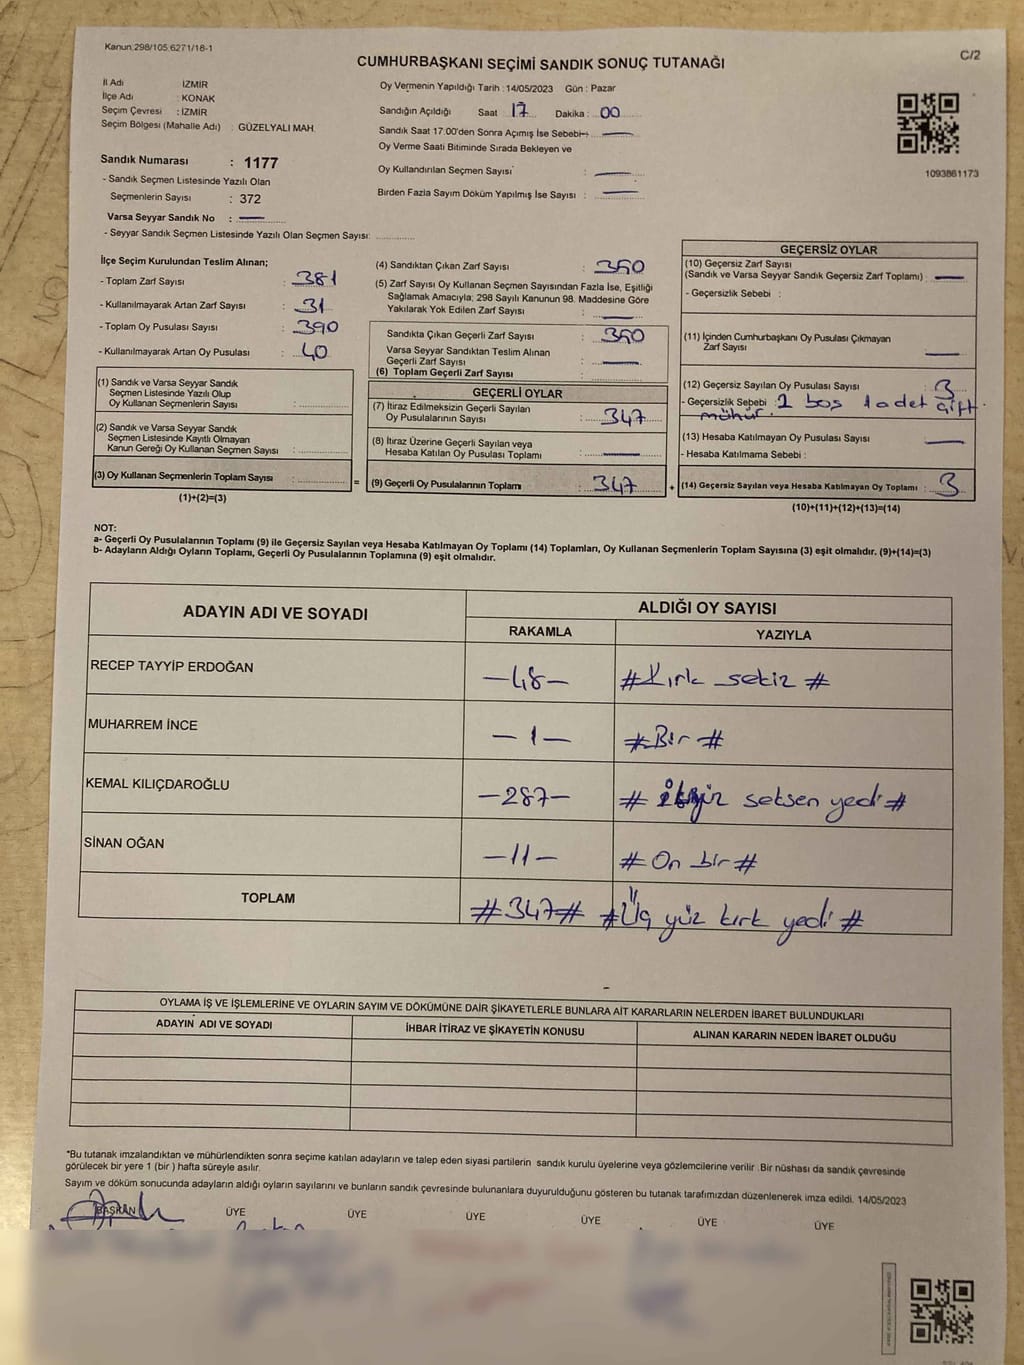 Kanun:298/105,6271/18-1
C/2
CUMHURBAŞKANI SEÇİMİ SANDIK SONUÇ TUTANAĞI
İl Adı İZMİR
İlçe Adı : KONAK
Seçim Çevresi : İZMİR
Seçim Bölgesi (Mahalle Adı) : GÜZELYALI MAH.
Sandık Numarası : 1177
- Sandık Seçmen Listesinde Yazılı Olan
Seçmenlerin Sayısı : 372
Varsa Seyyar Sandık No : —
- Seyyar Sandık Seçmen Listesinde Yazılı Olan Seçmen Sayısı:
Oy Vermenin Yapıldığı Tarih : 14/05/2023 Gün : Pazar
Sandığın Açıldığı Saat 17 Dakika : 00
Sandık Saat 17:00'den Sonra Açımış İse Sebebi: —
Oy Verme Saati Bitiminde Sırada Bekleyen ve
Oy Kullandırılan Seçmen Sayısı : —
Birden Fazla Sayım Döküm Yapılmış İse Sayısı : —
1093861173
İlçe Seçim Kurulundan Teslim Alınan;
- Toplam Zarf Sayısı : 381
- Kullanılmayarak Artan Zarf Sayısı : 31
- Toplam Oy Pusulası Sayısı : 390
- Kullanılmayarak Artan Oy Pusulası : 40
(1) Sandık ve Varsa Seyyar Sandık
Seçmen Listesinde Yazılı Olup
Oy Kullanan Seçmenlerin Sayısı :
(2) Sandık ve Varsa Seyyar Sandık
Seçmen Listesinde Kayıtlı Olmayan
Kanun Gereği Oy Kullanan Seçmen Sayısı :
(3) Oy Kullanan Seçmenlerin Toplam Sayısı :
(1)+(2)=(3)
(4) Sandıktan Çıkan Zarf Sayısı : 350
(5) Zarf Sayısı Oy Kullanan Seçmen Sayısından Fazla İse, Eşitliği
Sağlamak Amacıyla; 298 Sayılı Kanunun 98. Maddesine Göre
Yakılarak Yok Edilen Zarf Sayısı : —
Sandıkta Çıkan Geçerli Zarf Sayısı : 350
Varsa Seyyar Sandıktan Teslim Alınan
Geçerli Zarf Sayısı : —
(6) Toplam Geçerli Zarf Sayısı :
GEÇERLİ OYLAR
(7) İtiraz Edilmeksizin Geçerli Sayılan
Oy Pusulalarının Sayısı : 347
(8) İtiraz Üzerine Geçerli Sayılan veya
Hesaba Katılan Oy Pusulası Toplamı : —
= (9) Geçerli Oy Pusulalarının Toplamı : 347
GEÇERSİZ OYLAR
(10) Geçersiz Zarf Sayısı
(Sandık ve Varsa Seyyar Sandık Geçersiz Zarf Toplamı) : —
- Geçersizlik Sebebi :
(11) İçinden Cumhurbaşkanı Oy Pusulası Çıkmayan
Zarf Sayısı —
(12) Geçersiz Sayılan Oy Pusulası Sayısı : 3
- Geçersizlik Sebebi : 2 boş 1 adet çift
mühür.
(13) Hesaba Katılmayan Oy Pusulası Sayısı : —
- Hesaba Katılmama Sebebi :
+ (14) Geçersiz Sayılan veya Hesaba Katılmayan Oy Toplamı : 3
(10)+(11)+(12)+(13)=(14)
NOT:
a- Geçerli Oy Pusulalarının Toplamı (9) ile Geçersiz Sayılan veya Hesaba Katılmayan Oy Toplamı (14) Toplamları, Oy Kullanan Seçmenlerin Toplam Sayısına (3) eşit olmalıdır. (9)+(14)=(3)
b- Adayların Aldığı Oyların Toplamı, Geçerli Oy Pusulalarının Toplamına (9) eşit olmalıdır.
ADAYIN ADI VE SOYADI ALDIĞI OY SAYISI
RAKAMLA YAZIYLA
RECEP TAYYİP ERDOĞAN —48— #Kırk sekiz #
MUHARREM İNCE —1— #Bir #
KEMAL KILIÇDAROĞLU —287— # ikiyüz seksen yedi #
SİNAN OĞAN —11— #On bir #
TOPLAM #347# #Üç yüz kırk yedi #
OYLAMA İŞ VE İŞLEMLERİNE VE OYLARIN SAYIM VE DÖKÜMÜNE DAİR ŞİKAYETLERLE BUNLARA AİT KARARLARIN NELERDEN İBARET BULUNDUKLARI
ADAYIN ADI VE SOYADI İHBAR İTİRAZ VE ŞİKAYETİN KONUSU ALINAN KARARIN NEDEN İBARET OLDUĞU
*Bu tutanak imzalandıktan ve mühürlendikten sonra seçime katılan adayların ve talep eden siyasi partilerin sandık kurulu üyelerine veya gözlemcilerine verilir .Bir nüshası da sandık çevresinde
görülecek bir yere 1 (bir ) hafta süreyle asılır.
Sayım ve döküm sonucunda adayların aldığı oyların sayılarını ve bunların sandık çevresinde bulunanlara duyurulduğunu gösteren bu tutanak tarafımızdan düzenlenerek imza edildi. 14/05/2023
BAŞKAN ÜYE ÜYE ÜYE ÜYE ÜYE ÜYE